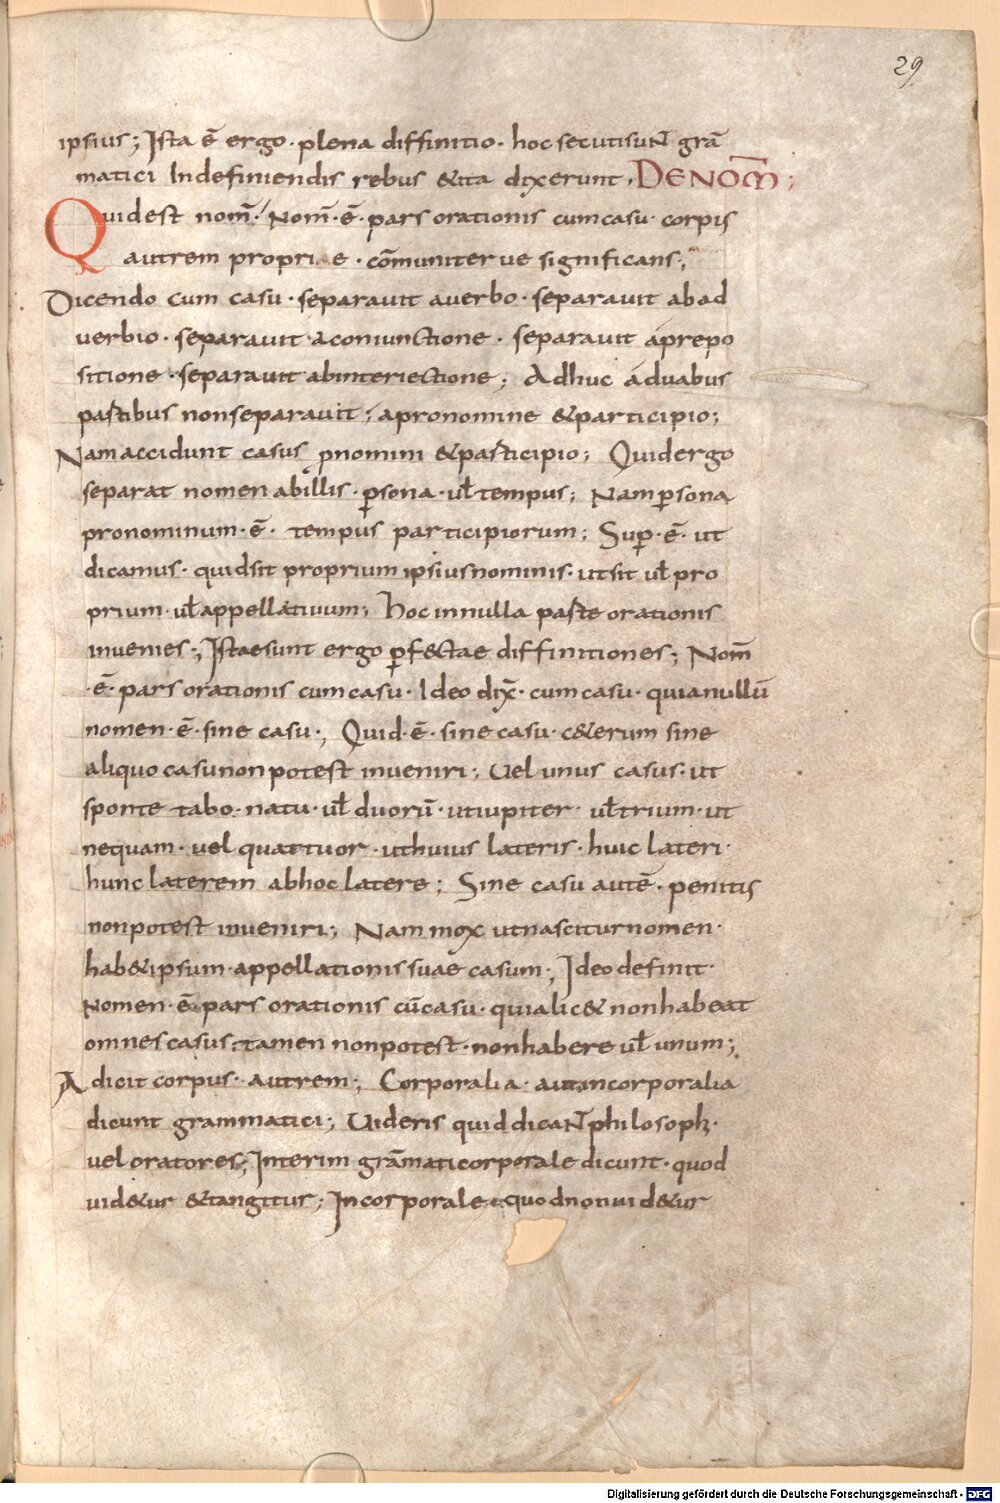 29
ipsius; Ista ē ergo · plena diffinitio · hoc secuti suNT grā
matici In definiendis rebus & ita dixerunt · DE NOM̄;
Quid est nom̄ · Nom̄ · ē · pars orationis cum casu · corpis
aut rem propriae · cōmuniter ue significans;
Dicendo cum casu · separauit a uerbo · separauit ab ad
uerbio · separauit · a coniunctione · separauit á prepo
sitione · separauit ab interiectione; Adhuc á duabus
partibus non separauit; a pronomine & participio;
Nam accidunt casus pnomini & participio; Quid ergo
separat nomen ab illis · p̱sona · ul̄ tempus; Nam p̱sona
pronominum · ē · tempus participiorum; Sup̱ · ē · ut
dicamus · quid sit proprium ipsius nominis · ut sit ul̄ pro
prium · ul̄ appellatiuum; Hoc in nulla parte orationis
inuenies; Istae sunt ergo p̱f&ctae diffinitiones; Nom̄
· ē · pars orationis cum casu · Ideo dix̄ · cum casu · quia nullū
nomen · ē · sine casu; Quid · ē · sine casu · c&erum sine
aliquo casu non potest inueniri; Uel unus casus · ut
sponte tabo · natu · ul̄ duorū · ut iupiter · ul̄ trium · ut
nequam · uel quattuor · ut huius lateris · huic lateri ·
hunc laterem ab hoc latere; Sine casu autē · penitis
non potest inueniri; Nam mox ut nascitur nomen ·
hab& ipsum · appellationis suae casum; Ideo definit ·
Nomen · ē · pars orationis cū casu · quia lic& non habeat
omnes casus · tamen non potest · non habere ul̄ unum;
Adicit corpus · aut rem; Corporalia · aut incorporalia
dicunt grammatici; Uideris quid dicaNT philosophi ·
uel oratores; Interim grāmati corporale dicunt · quod
uid&ur & tangitur; Incorporale · quod non uid&ur
Digitalisierung gefördert durch die Deutsche Forschungsgemeinschaft - DFG